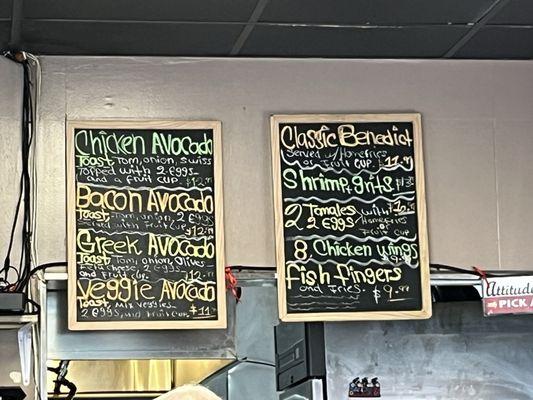 Chicken Avocado
Toast, Tom, onion, swiss
Topped with 2 eggs
and a fruit cup $12.
Bacon Avocado
Toast, Tom, onion, 2 eggs
served with fruit cup
$12.
Greek Avocado
Toast, Tom, onion, olives
Feta cheese, 2 eggs
and fruit cup $12.
Veggie Avocado
Toast, Mix veggies
2 eggs, and fruit cup $11
Classic Benedict
Served w/ Homefries
or fruit cup $11.
Shrimp, grits $13
2 Tamales with $12
2 eggs Homefries
or
fruit cup
8 Chicken wings
Fish fingers
and fries $9.
Attitude
PICK A